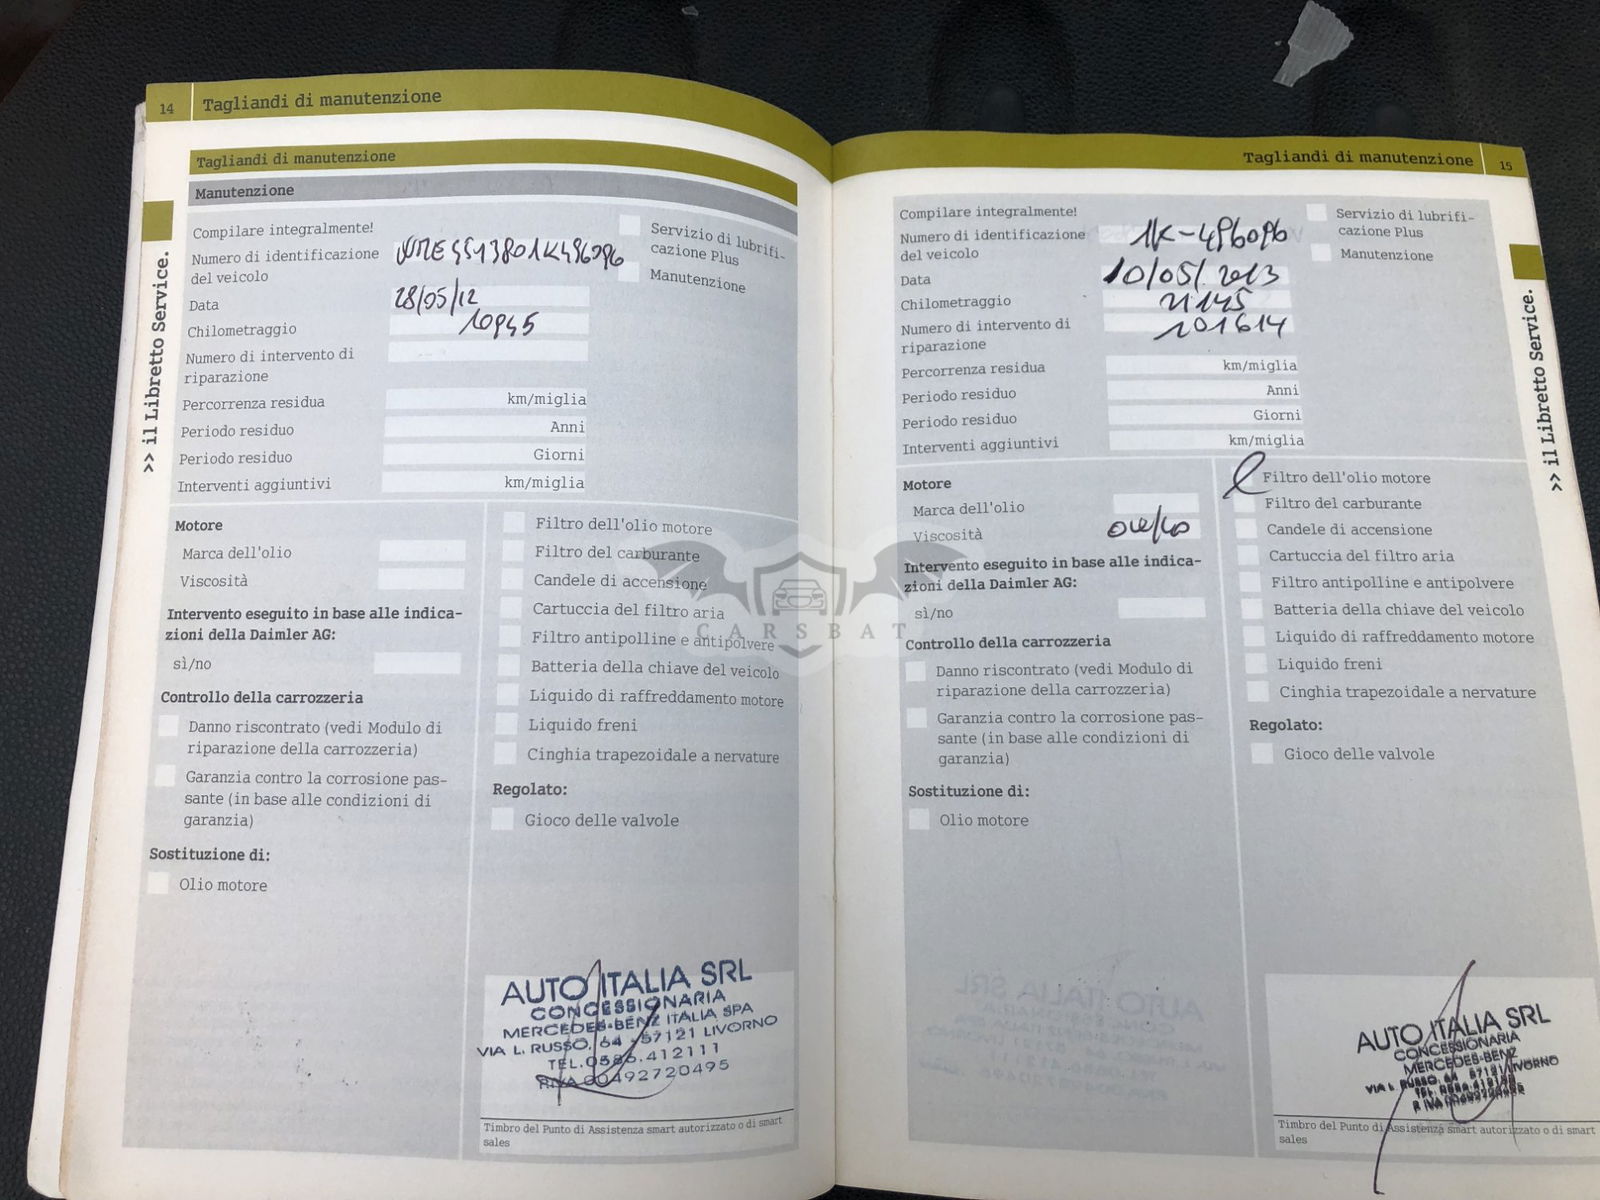 14 Tagliandi di manutenzione
Tagliandi di manutenzione
Manutenzione
Compilare integralmente!
Numero di identificazione
del veicolo
WME4513801K496096
Data 28/05/12
Chilometraggio 10945
Numero di intervento di
riparazione
Percorrenza residua km/miglia
Periodo residuo Anni
Periodo residuo Giorni
Interventi aggiuntivi km/miglia
Servizio di lubrifi-
cazione Plus
Manutenzione
Motore
Marca dell'olio
Viscosità
Intervento eseguito in base alle indica-
zioni della Daimler AG:
sì/no
Controllo della carrozzeria
Danno riscontrato (vedi Modulo di
riparazione della carrozzeria)
Garanzia contro la corrosione pas-
sante (in base alle condizioni di
garanzia)
Sostituzione di:
Olio motore
Filtro dell'olio motore
Filtro del carburante
Candele di accensione
Cartuccia del filtro aria
Filtro antipolline e antipolvere
Batteria della chiave del veicolo
Liquido di raffreddamento motore
Liquido freni
Cinghia trapezoidale a nervature
Regolato:
Gioco delle valvole
AUTO ITALIA SRL
CONCESSIONARIA
MERCEDES-BENZ ITALIA SPA
VIA L. RUSSO, 64 - 57121 LIVORNO
TEL.0586.412111
P.IVA 00492720495
Timbro del Punto di Assistenza smart autorizzato o di smart
sales
>> il Libretto Service.
CARSBAT
Tagliandi di manutenzione 15
Compilare integralmente!
Numero di identificazione
del veicolo
1K-496096
Data 10/05/2013
Chilometraggio 21145
Numero di intervento di
riparazione
101614
Percorrenza residua km/miglia
Periodo residuo Anni
Periodo residuo Giorni
Interventi aggiuntivi km/miglia
Servizio di lubrifi-
cazione Plus
Manutenzione
Motore
Marca dell'olio
Viscosità 0W/40
Intervento eseguito in base alle indica-
zioni della Daimler AG:
sì/no
Controllo della carrozzeria
Danno riscontrato (vedi Modulo di
riparazione della carrozzeria)
Garanzia contro la corrosione pas-
sante (in base alle condizioni di
garanzia)
Sostituzione di:
Olio motore
Filtro dell'olio motore
Filtro del carburante
Candele di accensione
Cartuccia del filtro aria
Filtro antipolline e antipolvere
Batteria della chiave del veicolo
Liquido di raffreddamento motore
Liquido freni
Cinghia trapezoidale a nervature
Regolato:
Gioco delle valvole
AUTO ITALIA SRL
CONCESSIONARIA
MERCEDES-BENZ
VIA L. RUSSO, 64 57121 LIVORNO
Timbro del Punto di Assistenza smart autorizzato o di smart
sales
>> il Libretto Service.